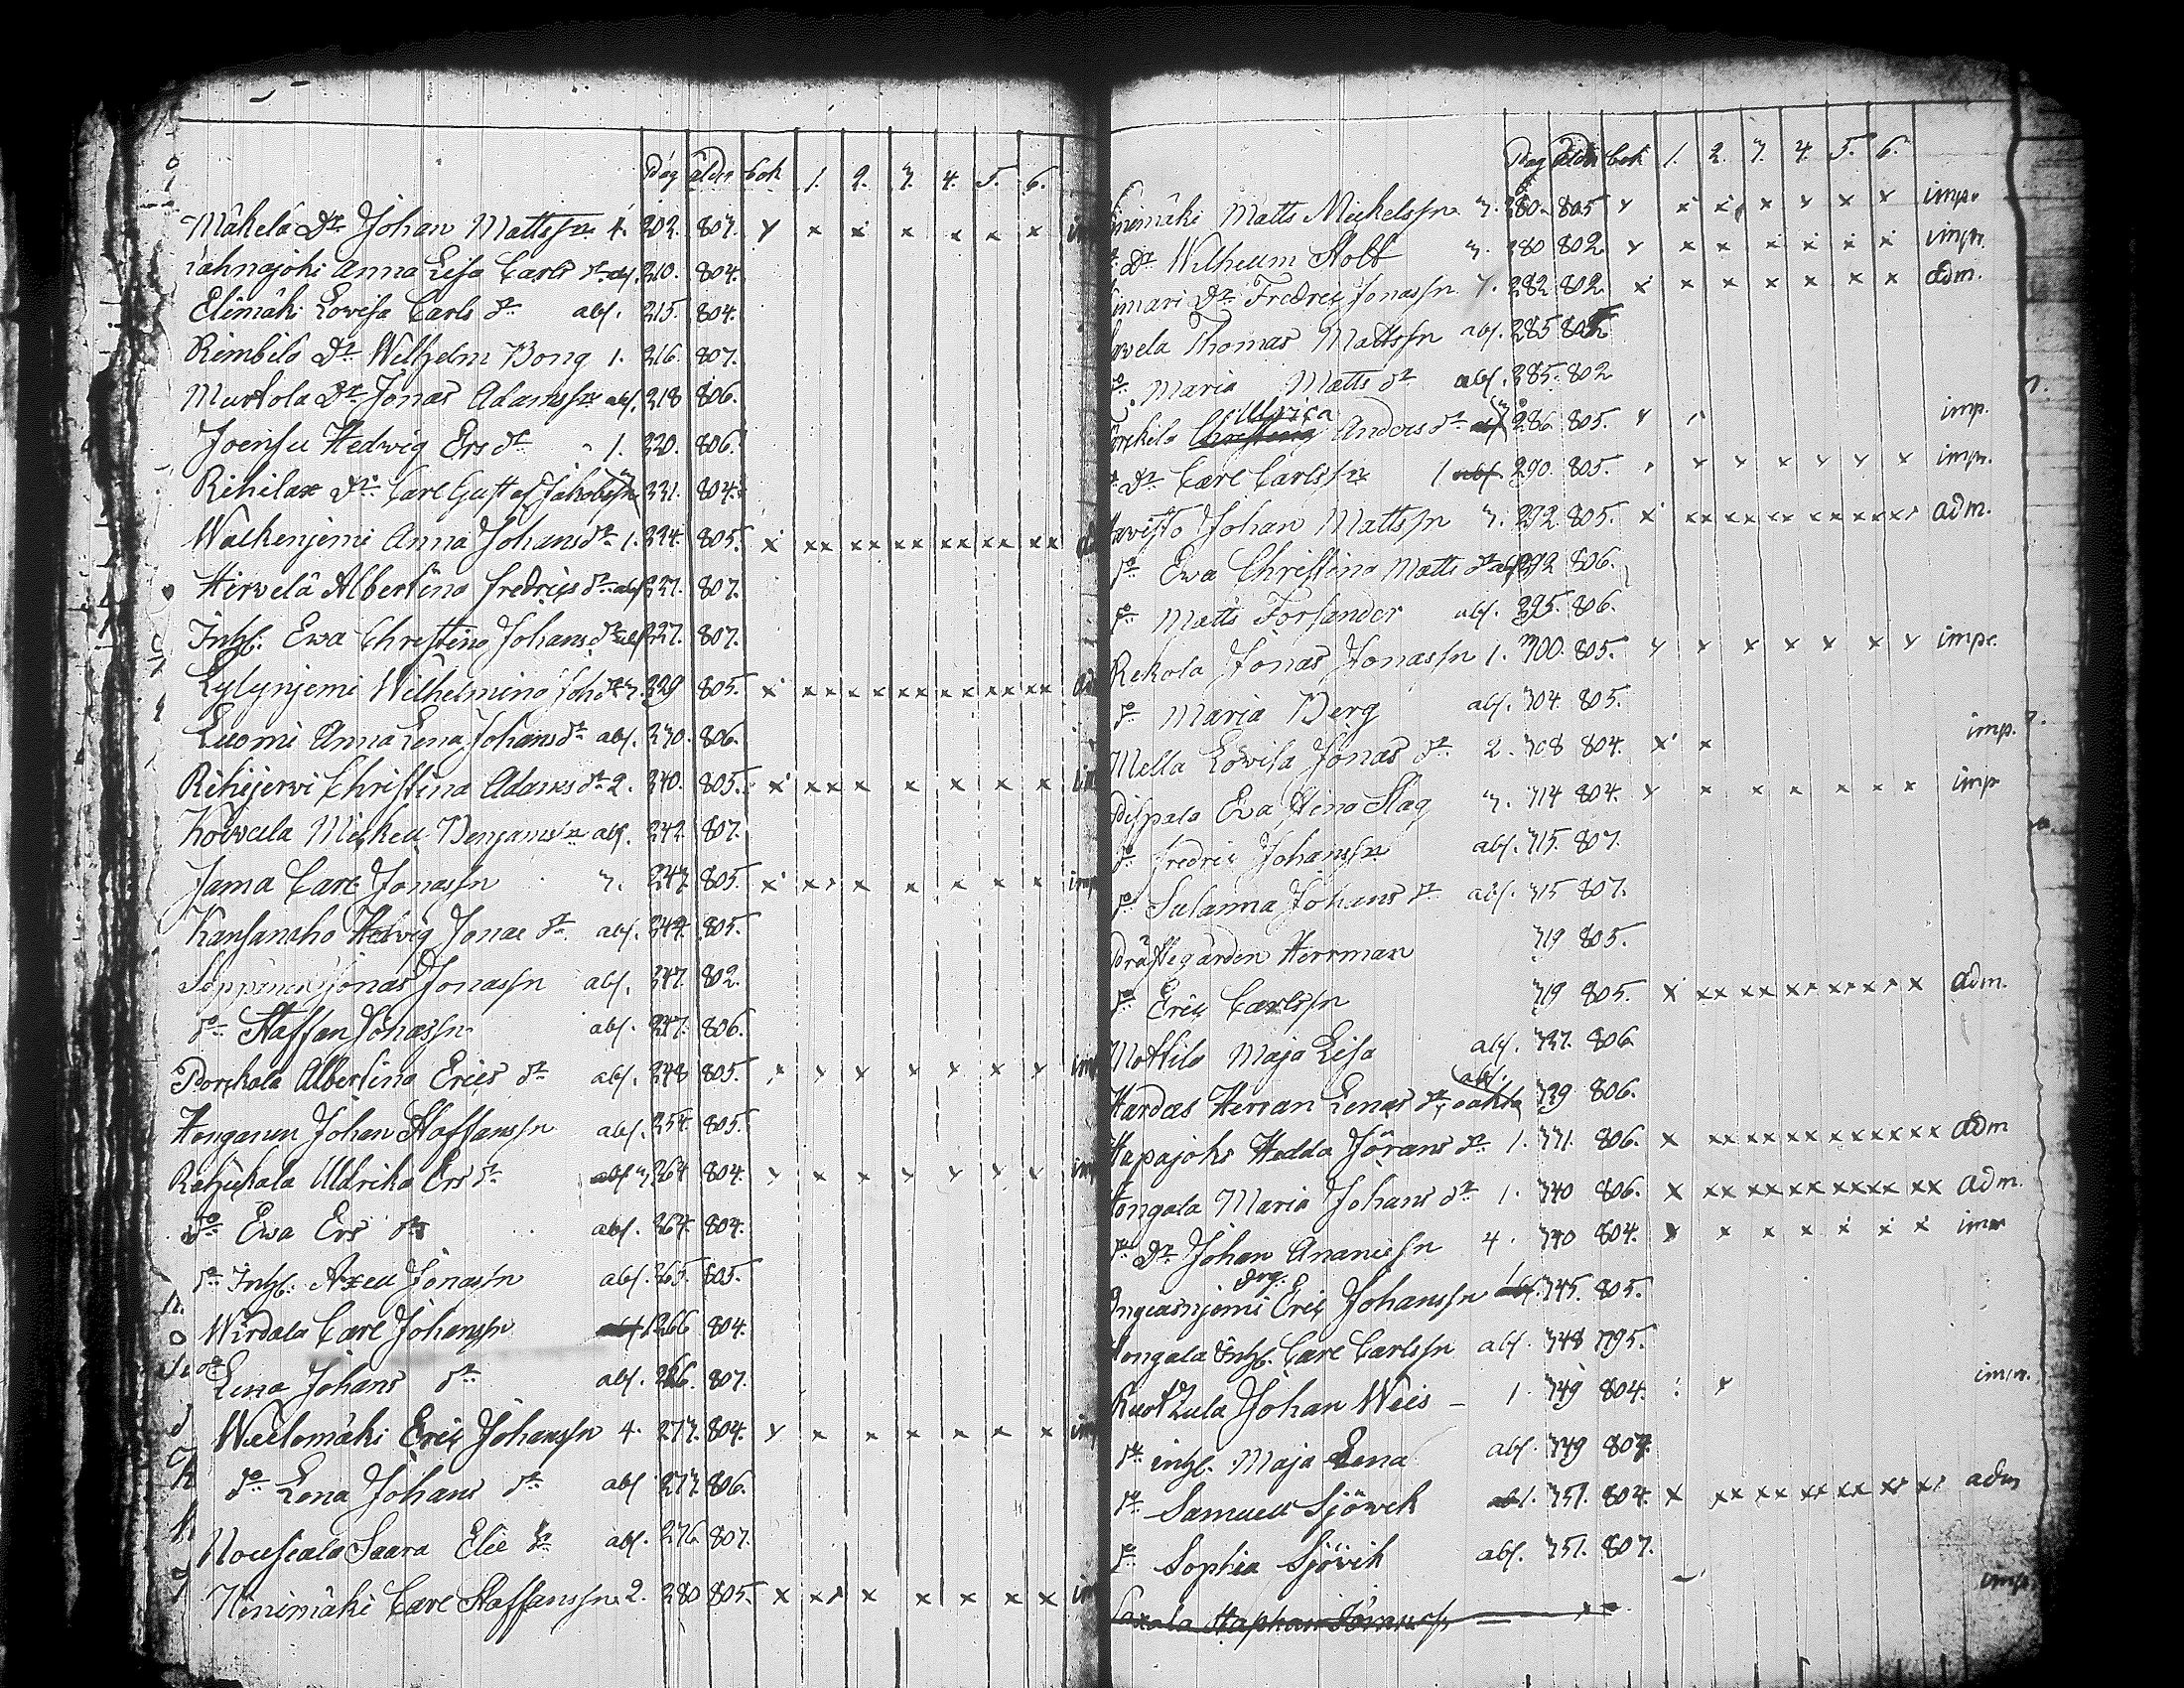 Pag ålder bok 1. 2. 3. 4. 5. 6.
Mäkelä Dr. Johan Mattssn 4. 202. 803. x x x x x x x
Anna Lisa Carls dr abs. 210. 804.
Elimäki Lovisa Carls dr abs. 215. 804.
Dr. Wilhelm Bong 1. 216. 803.
Murtola Dr. Jonas Adamssn abs. 218 806.
Joensu Hedvig Ers dr 1. 220. 806.
Dr. Carl Gustaf Jakobssn 221. 804.
Walkenjemi Anna Johans dr 1. 224. 805. x xx xx xx xx xx xx
Hirvelä Albertina Fredrics dr abs. 227. 807.
Inhs. Ewa Christina Johans dr abs. 227. 807.
Lylynjemi Wilhelmina Joh dr 3. 229 805. x xx xx xx xx xx xx
Luomi Anna Lena Johans dr abs. 230. 806.
Rihijervi Christina Adams dr 2. 240. 805. x xx x x x x x
Koivula Michell Benjamssn abs. 242 807.
Jama Carl Jonassn 3. 243. 805. x xx x x x x x
Kansanaho Hedvig Jonae dr abs. 244. 805.
Jonas Jonassn abs. 247. 802.
do Staffan Jonassn abs. 247. 806.
Porckala Albertina Erics dr abs. 248 805. x x x x x x x
Henganen Johan Staffanssn abs. 254. 805.
Uldrika Ers dr abs 3. 264 804. x x x x x x x
do Ewa Ers dr abs. 264. 804.
do Inhs. Axell Jonassn abs. 265. 805.
Wirdala Carl Johanssn abs. 266 804.
do Lena Johans dr abs. 266. 807.
Wuolomäki Eric Johanssn 4. 273. 804. x x x x x x x
do Lena Johans dr abs 273. 806.
Saara Elie dr abs. 276 807.
Ninimäki Carl Staffanssn 2. 280 805. x xx x x x x x
Pag ålder bok 1. 2. 3. 4. 5. 6.
Matts Michelssn 3. 280. 805 x x x x x x x imp.
Dr. Wilhelm Stolt 3. 280 802 x x x x x x x imp.
Dr. Fredric Jonassn 3. 282 802 x x x x x x x adm.
Thomas Mattssn abs. 285 805
do Maria Matts dr abs. 285. 802
Ulrica
Christina Anders dr abs 286 805. x imp.
Dr. Carl Carlssn 1 abs 290. 805. x x x x x x imp.
Johan Mattssn 3. 292. 805. x xx xx xx xx xx xx adm.
do Ewa Christina Matts dr abs 292 806.
do Matts Forsander abs. 295. 806.
Rekola Jonas Jonassn 1. 300. 805. x x x x x x x imp.
do Maria Berg abs. 304. 805.
Mella Lovisa Jonas dr 2. 308 804. x x imp.
Ewa Stina Stag 3. 314 804. x x x x x x x imp
do Fredric Johanssn abs. 315. 807.
do Susanna Johans dr abs. 315 807.
Prästegården Herrman 319 805.
do Eric Carlssn 319 805. x xx xx xx xx xx x adm.
Mottila Maja Lisa abs. 327. 806
abs.
Herman Lenas dr 329 806.
Hapajoki Hedda Jörans dr 1. 331. 806. x xx xx xx xx xx xx adm
Hongala Maria Johans dr 1. 340 806. x xx xx xx xx xx xx adm.
do Dr. Johan Ananiessn 4. 340 804. x x x x x x x imp
drg.
Eric Johanssn abs. 345. 805.
Hongala Inhs. Carl Carlssn abs. 348 795.
Johan Weis 1. 349 804. x imp.
do inhs. Maja Lena abs. 349 807.
do Samuell Sjövik abs. 351. 804. x xx xx xx xx xx xx adm
do Sophia Sjövik abs. 351. 807.
imp.